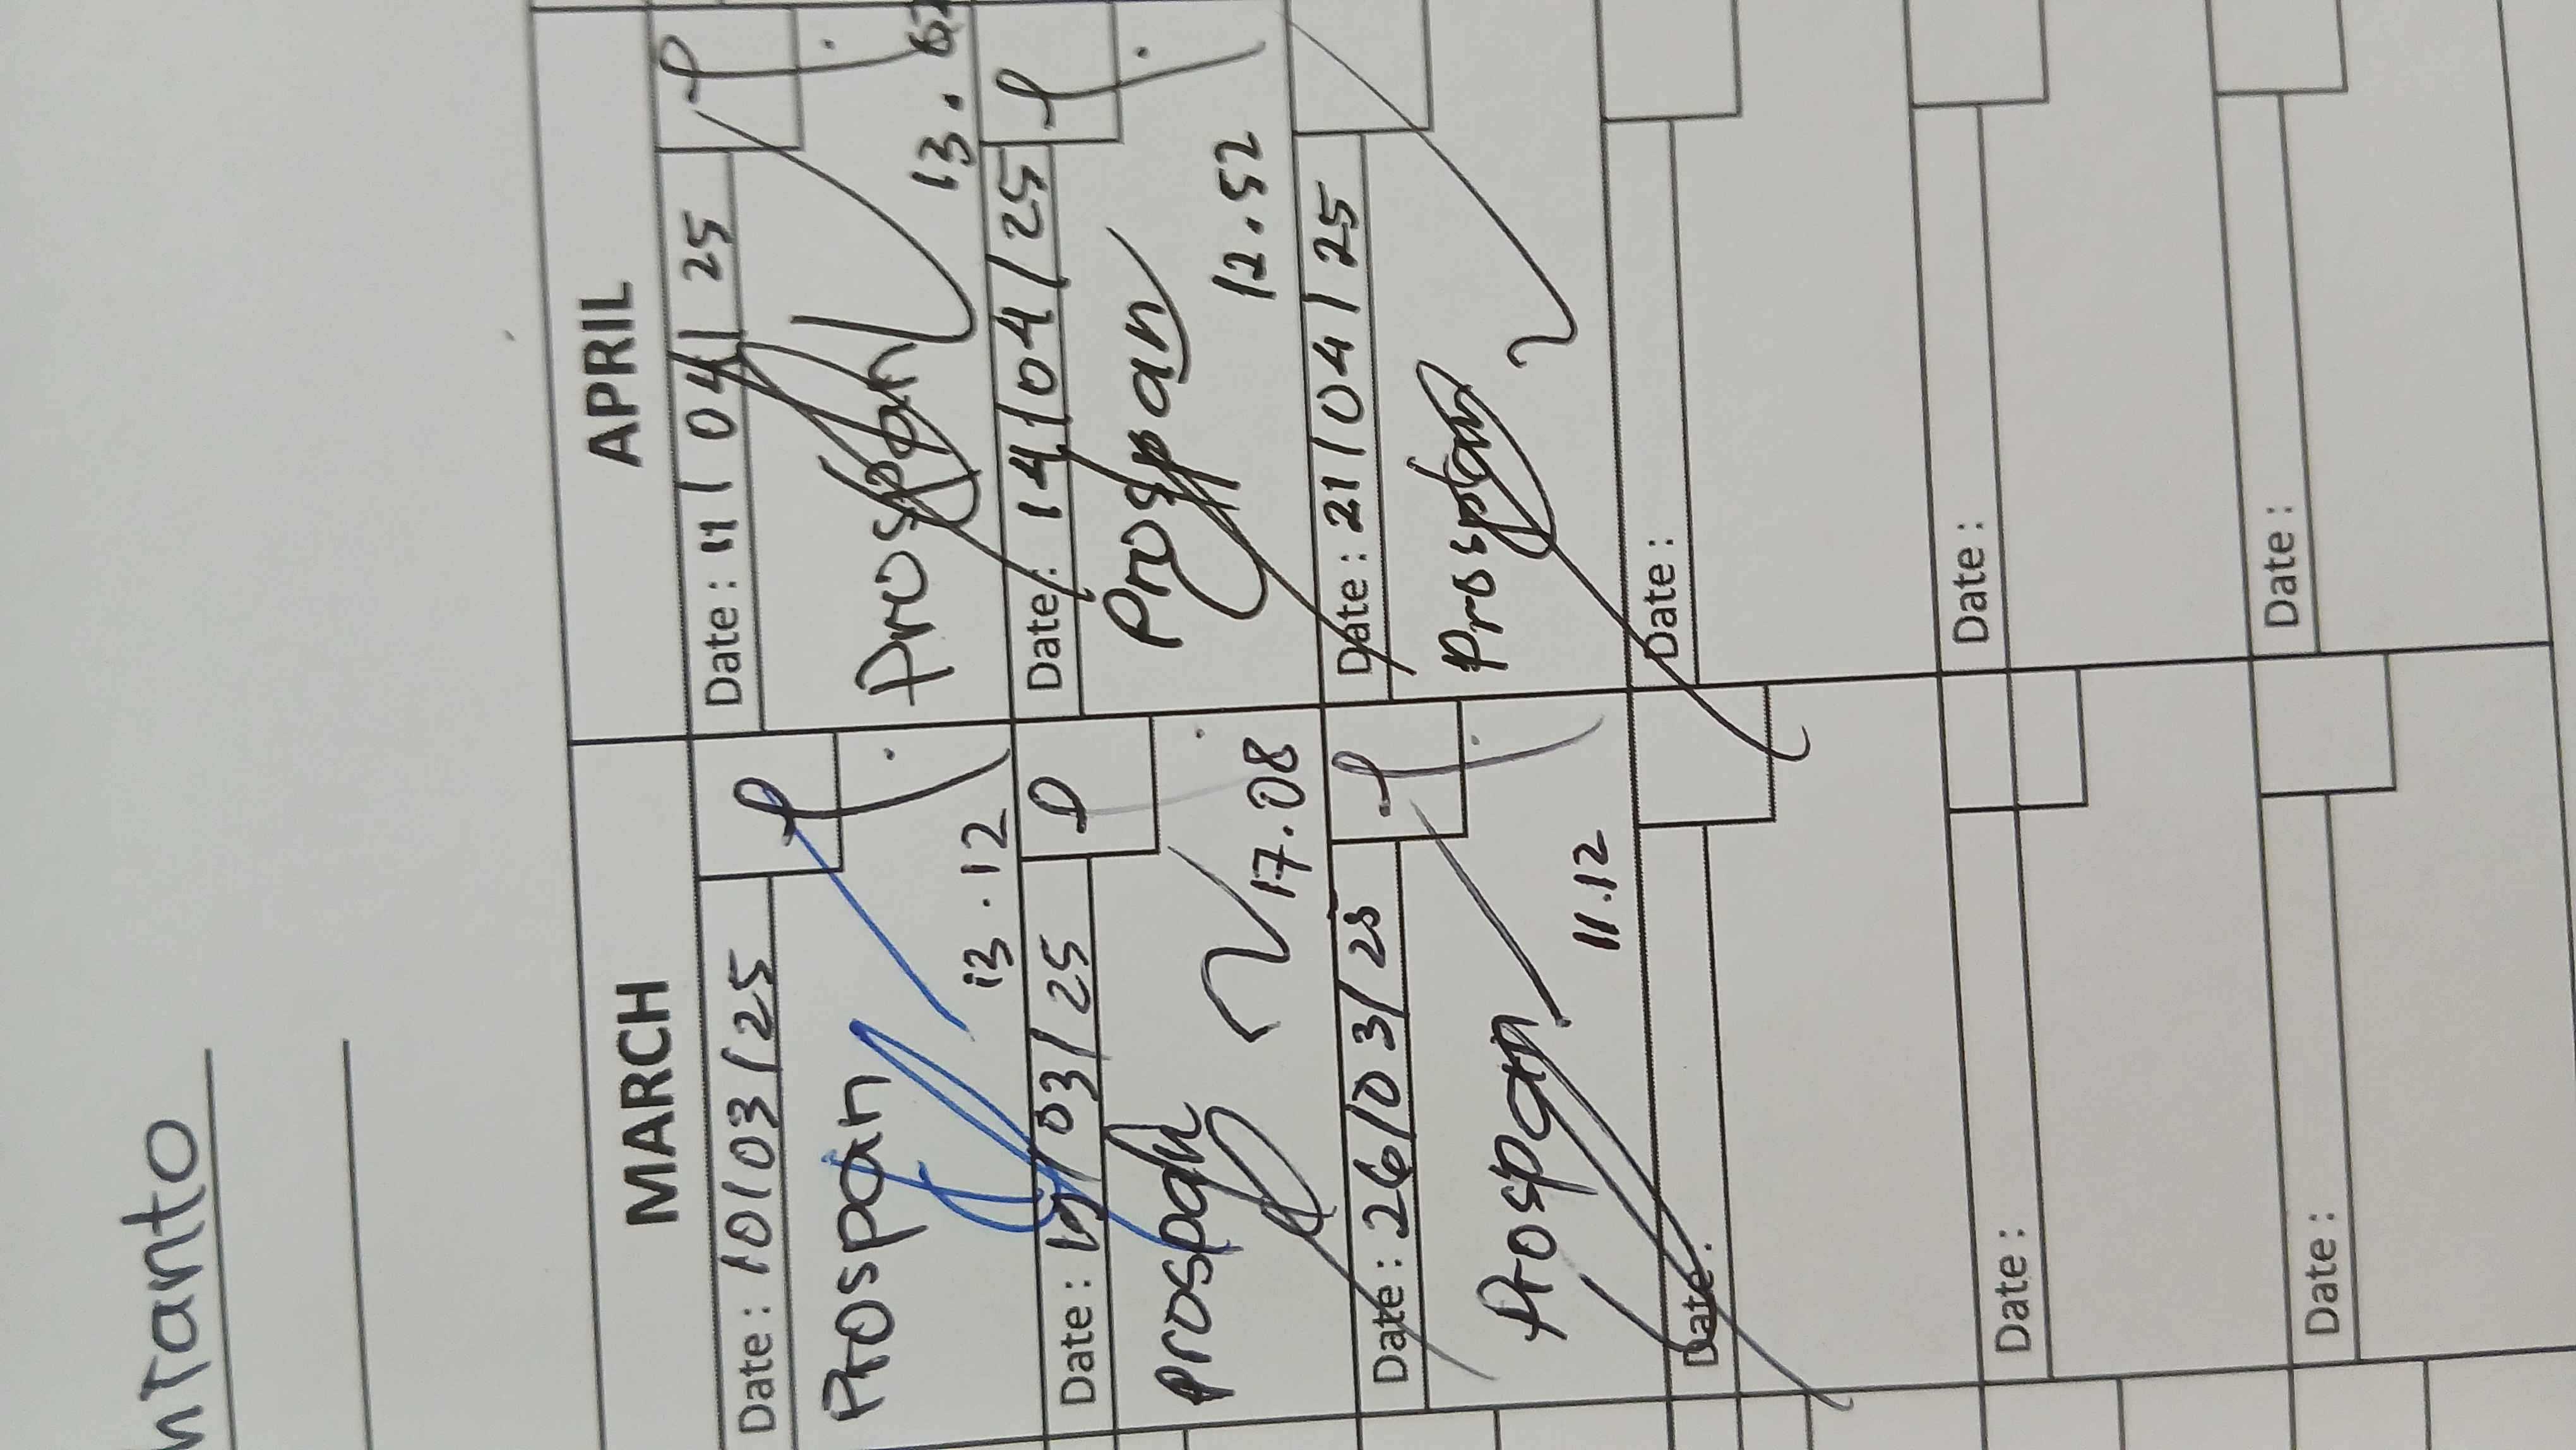 nTanto
MARCH
APRIL
Date : 10/03/25
Prospan
13.12
Date : 11/04/25
Prospan
13.
Date : 19/03/25
Prospan
17.08
Date : 14/04/25
Prospan
12.52
Date : 26/03/25
Prospan
11.12
Date : 21/04/25
Prospan
Date :
Date :
Date :
Date :
Date :
Date :